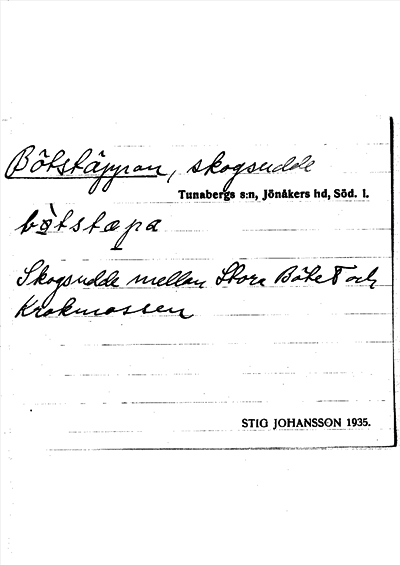 Bötstäppan, skogsudde
Tunabergs s:n, Jönåkers hd, Söd. l.
bø̀tstæpa
Skogsudde mellan Stora Bötet och
Krokmossen
STIG JOHANSSON 1935.